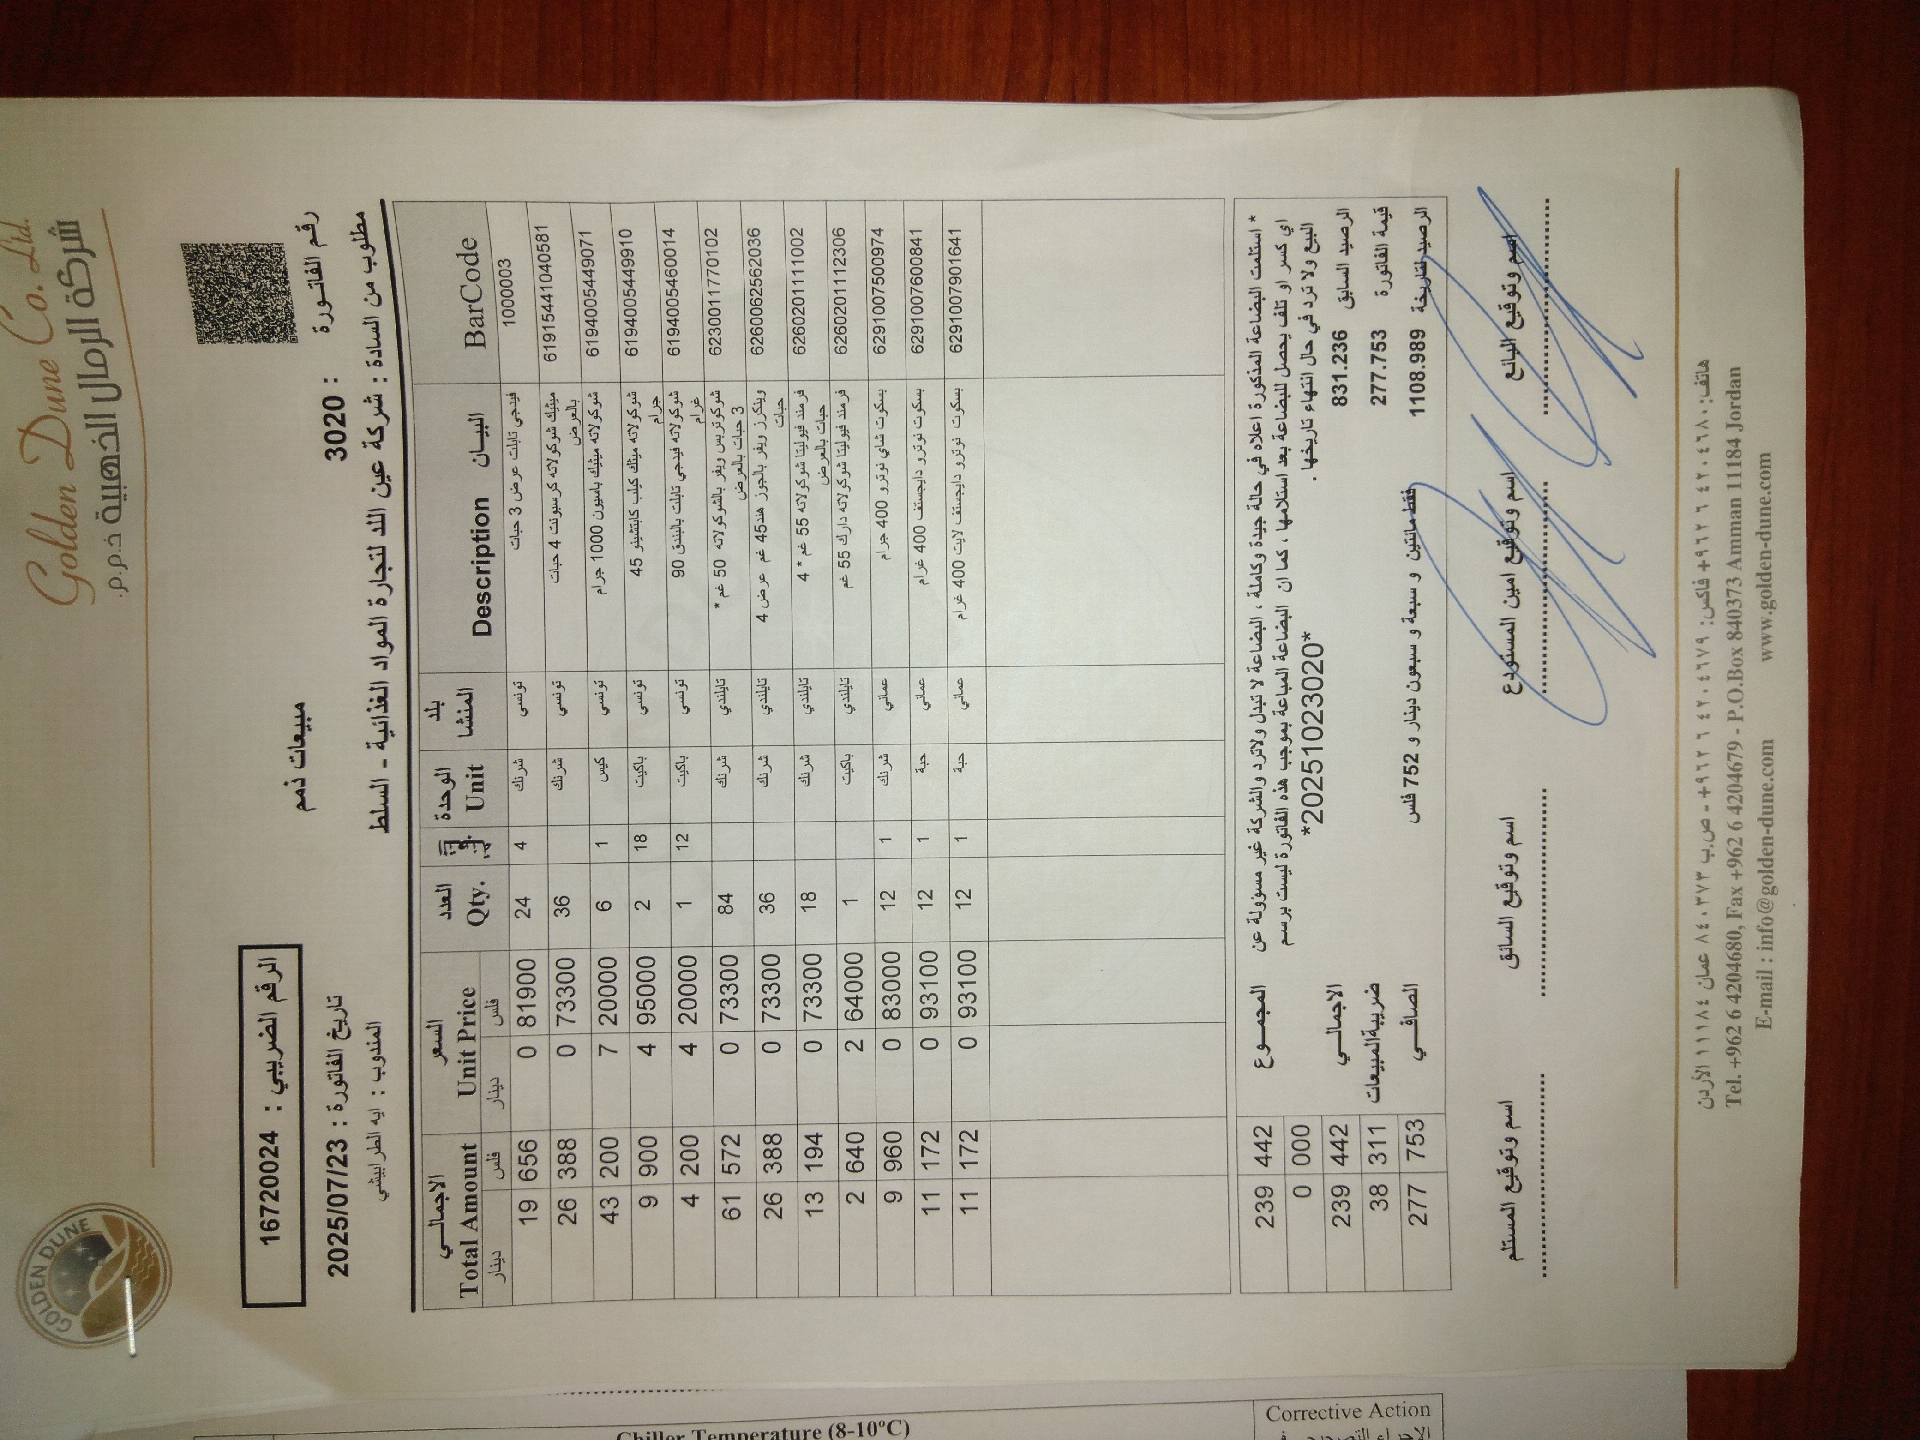 Golden Dune Co. Ltd.
شركة الرمال الذهبية ذ.م.م.
GOLDEN DUNE
الرقم الضريبي : 16720024
مبيعات ذمم
رقم الفاتورة : 3020
تاريخ الفاتورة : 2025/07/23
مطلوب من السادة : شركة عين اللد لتجارة المواد الغذائية - السلط
المندوب : ايه الطرابيشي
BarCode البيان Description بلد المنشا الوحدة Unit العدد Qty. السعر Unit Price الاجمالي Total Amount
فلس دينار فلس دينار
1000003 فيدجي تابلت عرض 3 حبات تونسي شرنك 4 24 81900 0 656 19
6191544104058​1 ميثيك شوكولاته كرسبونت 4 حبات بالعرض تونسي شرنك 36 73300 0 388 26
6194005449071 شوكولاته ميثيك باسيون 1000 جرام تونسي كيس 1 6 20000 7 200 43
6194005449910 شوكولاته ميثك كيلب كابتشينو 45 جرام تونسي باكيت 18 2 95000 4 900 9
6194005460014 شوكولاته فيدجي تابلت بالبندق 90 غرام تونسي باكيت 12 1 20000 4 200 4
6230011770102 شوكوتريس ويفر بالشوكولاته 50 غم * 3 حبات بالعرض تايلندي شرنك 84 73300 0 572 61
6260062562036 ويتكرز ويفر بالجوز هند45 غم عرض 4 حبات تايلندي شرنك 36 73300 0 388 26
6260201111002 فرمند فيوليتا شوكولاته 55 غم * 4 حبات بالعرض تايلندي شرنك 18 73300 0 194 13
6260201112306 فرمند فيوليتا شوكولاته دارك 55 غم تايلندي باكيت 1 64000 2 640 2
6291007500974 بسكوت شاي نوترو 400 جرام عماني شرنك 1 12 83000 0 960 9
6291007600841 بسكوت نوترو دايجستف 400 غرام عماني حبة 1 12 93100 0 172 11
6291007901641 بسكوت نوترو دايجستف لايت 400 غرام عماني حبة 1 12 93100 0 172 11
* استلمت البضاعة المذكورة اعلاه في حالة جيدة وكاملة ، البضاعة لا تبدل ولاترد والشركة غير مسؤولة عن
اي كسر او تلف يحصل للبضاعة بعد استلامها ، كما ان البضاعة المباعة بموجب هذه الفاتورة ليست برسم
البيع ولا ترد في حال انتهاء تاريخها .
*20251023020*
المجموع 442 239
000 0
الرصيد السابق 831.236 الاجمالي 442 239
قيمة الفاتورة 277.753 ضريبة المبيعات 311 38
الرصيد لتاريخة 1108.989 فقط مائتين و سبعة و سبعون دينار و 752 فلس الصافي 753 277
اسم وتوقيع البائع اسم وتوقيع امين المستودع اسم وتوقيع السائق اسم وتوقيع المستلم
هاتف: ٤٢٠٤٦٨٠ ٦ ٩٦٢+ فاكس: ٤٢٠٤٦٧٩ ٦ ٩٦٢+ - ص.ب ٨٤٠٣٧٣ عمان ١١١٨٤ الأردن
Tel. +962 6 4204680, Fax +962 6 4204679 - P.O.Box 840373 Amman 11184 Jordan
E-mail : info@golden-dune.com www.golden-dune.com
Chiller Temperature (8-10ºC)
Corrective Action